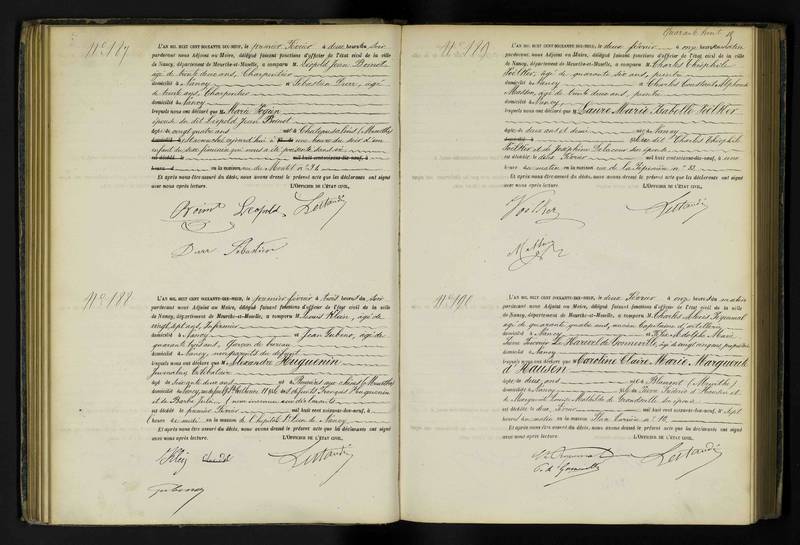 Nº 187
L'AN MIL HUIT CENT SOIXANTE-DIX-NEUF, le premier février à deux heures du soir
pardevant nous Adjoint au Maire, délégué faisant fonctions d'officier de l'état civil de la ville
de Nancy, département de Meurthe-et-Moselle, a comparu M. Léopold Jean Boinot
âgé de trente deux ans, Charpentier
domicilié à Nancy et Sébastien Durr, âgé
de trente ans, Charpentier
domicilié à Nancy
lesquels nous ont déclaré que M. Marie
épouse du dit Léopold Jean Boinot
âgée de vingt quatre ans née à Château-Salins (Meurthe)
est accouchée aujourd'hui à une heure du soir d'un
enfant du sexe féminin qui nous a été présenté sans vie
en la maison rue de Nº 34
Et après nous être assuré du décès, nous avons dressé le présent acte que les déclarants ont signé
avec nous après lecture. L'OFFICIER DE L'ÉTAT CIVIL,
Boinot Léopold
Durr Sébastien
Nº 188
L'AN MIL HUIT CENT SOIXANTE-DIX-NEUF, le premier février à trois heures du soir
pardevant nous Adjoint au Maire, délégué faisant fonctions d'officier de l'état civil de la ville
de Nancy, département de Meurthe-et-Moselle, a comparu M. Louis Klein, âgé de
vingt sept ans, Infirmier
domicilié à Nancy et Jean
quarante trois ans, Garçon de bureau
domicilié à Nancy, non parents du défunt
lesquels nous ont déclaré que M. Alexandre Huguenin
Journalier, Célibataire
âgé de soixante deux ans né à
domicilié à Nancy, fils des défunts François Huguenin
et de Barbe
est décédé le premier Février mil huit cent soixante-dix-neuf, à
heure en la maison de l'hôpital St Léon de Nancy
Et après nous être assuré du décès, nous avons dressé le présent acte que les déclarants ont signé
avec nous après lecture. L'OFFICIER DE L'ÉTAT CIVIL,
Quarante huit
Nº 189
L'AN MIL HUIT CENT SOIXANTE-DIX-NEUF, le deux février à onze heures du matin
pardevant nous Adjoint au Maire, délégué faisant fonctions d'officier de l'état civil de la ville
de Nancy, département de Meurthe-et-Moselle, a comparu M. Charles Théophile
Voelker, âgé de quarante six ans, peintre
domicilié à Nancy et Charles Constant Alphonse
Masson, âgé de trente deux ans, peintre
domicilié à Nancy
lesquels nous ont déclaré que M. Laure Marie Isabelle Voelker
âgée de deux ans et demi née à Nancy
fille du dit Charles Théophile
Voelker et de Joséphine son épouse
est décédée le deux Février mil huit cent soixante-dix-neuf, à une
heure du matin en la maison rue de la Pépinière nº 32
Et après nous être assuré du décès, nous avons dressé le présent acte que les déclarants ont signé
avec nous après lecture. L'OFFICIER DE L'ÉTAT CIVIL,
Voelker
Nº 190
L'AN MIL HUIT CENT SOIXANTE-DIX-NEUF, le deux Février à onze heures du matin
pardevant nous Adjoint au Maire, délégué faisant fonctions d'officier de l'état civil de la ville
de Nancy, département de Meurthe-et-Moselle, a comparu M. Charles
âgé de quarante quatre ans, ancien Capitaine d'artillerie
domicilié à Nancy et Adolphe Marie
Le Harivel de Gonneville, âgé de vingt cinq ans, propriétaire
domicilié à Nancy
lesquels nous ont déclaré que M. Caroline Claire Marie Marguerite
d'Hausen
âgée de deux ans née à Blamont (Meurthe)
domiciliée à Nancy fille de d'Hausen et
de Marguerite Louise Mathilde de son épouse
est décédée le deux Février mil huit cent soixante-dix-neuf, à sept
heures du matin en la maison Place Carrière nº 10
Et après nous être assuré du décès, nous avons dressé le présent acte que les déclarants ont signé
avec nous après lecture. L'OFFICIER DE L'ÉTAT CIVIL,
de Gonneville